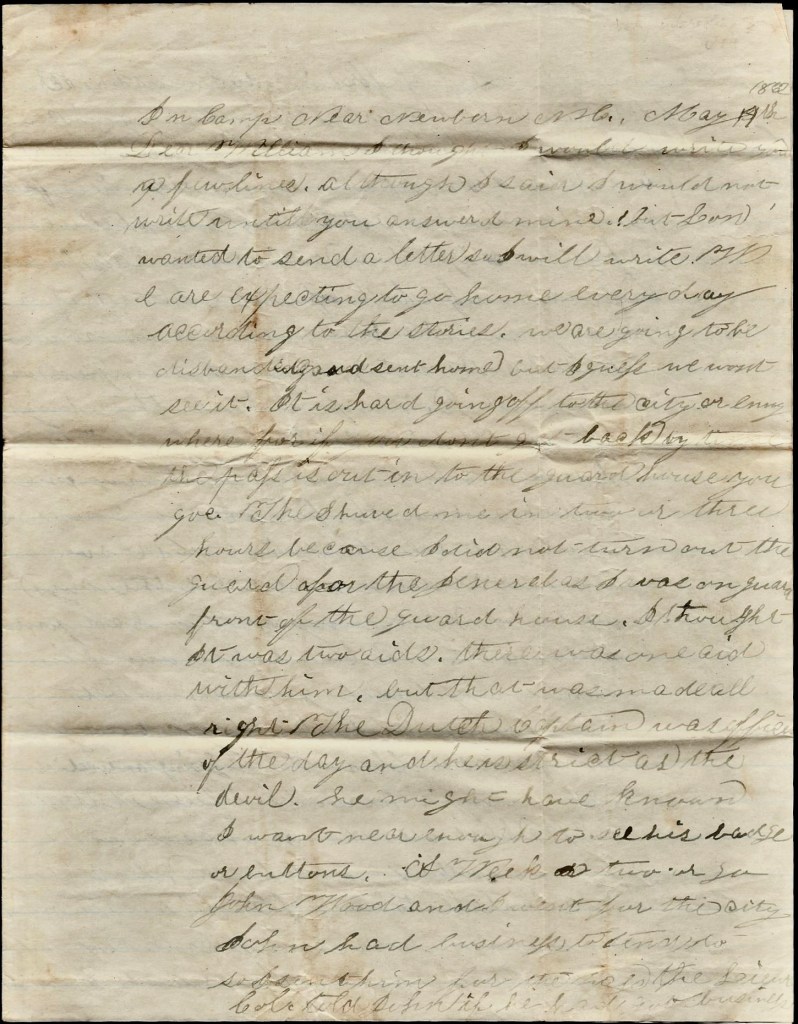 186
In Camp Near Newbern N.C., May 14th
Dear William I thought I would write you
a few lines. although I said I would not
write untill you answerd mine. but Con
wanted to send a letter so I will write. W
e are expecting to go home every day
according to the stories. we are going to be
disbanded and sent home but I guess we wont
see it. It is hard going off to the city or eny
where for if you dont get back by
the pass is out in to the guard house you
goe. The Shuved me in two or three
hours because I did not turn out the
guard for the General as I was on guard
front of the guard house. I thought
it was two aids. there was one aid
with him, but that was made all
right The Dutch Captain was officer
of the day and he is strict as the
devil. he might have known
I want near enough to see his badge
or buttons. A Week or two or so
John Wood and I went for the city
John had business to tend to
so I sent him for the the
Col told John